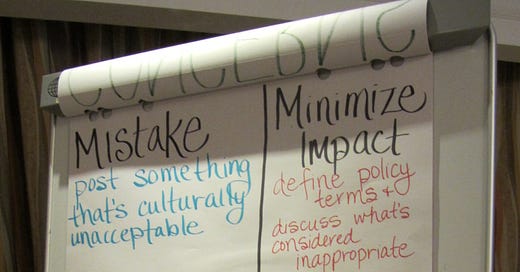 CONCERNS
Mistake
post something
that's culturally
unacceptable
Minimize
Impact
define policy
terms &
discuss what's
considered
inappropriate